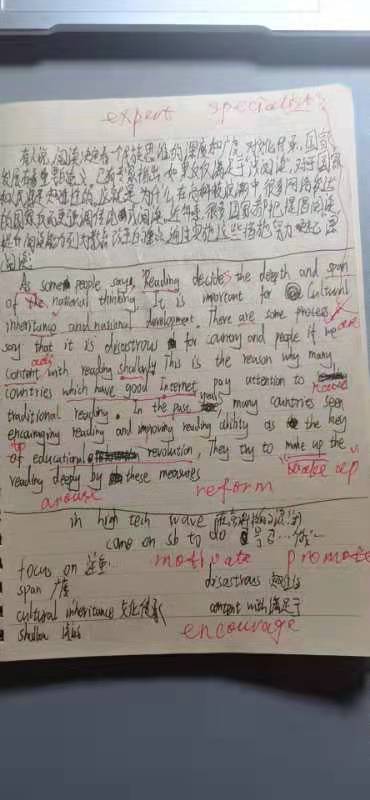 expert specialist
有人说,阅读决定着一个民族思维的深度和广度,对文化传承,国家
发展有重要的意义。已有专家指出,如果仅仅满足于浅阅读,对于国家
和人民是灾难性的。这就是为什么在高科技浪潮中很多网络发达
的国家反而更强调传统阅读。近年来,很多国家都把提倡阅读
提升阅读能力列为教育改革的重点,
阅读。
As some people says, Reading decides the depth and span
of the national thinking. It is important for cultural
inheritance and national development. There are some process
say that it is disastrous for country and people if we are
only
content with reading shallowly. This is the reason why many
countries which have good Internet pay attention to
traditional reading. In the past years many countries seen
encouraging reading and improving reading ability as the key
of educational revolution. They try to make up the
reading deeply by these measures
arouse reform
in high tech wave 在高科技的浪潮
call on sb to do 号召…做…
motivate promote
focus on 注重
span 广度 disastrous 灾难性的
cultural inheritance 文化传承 content with 满足于
shallow 浅的 encourage